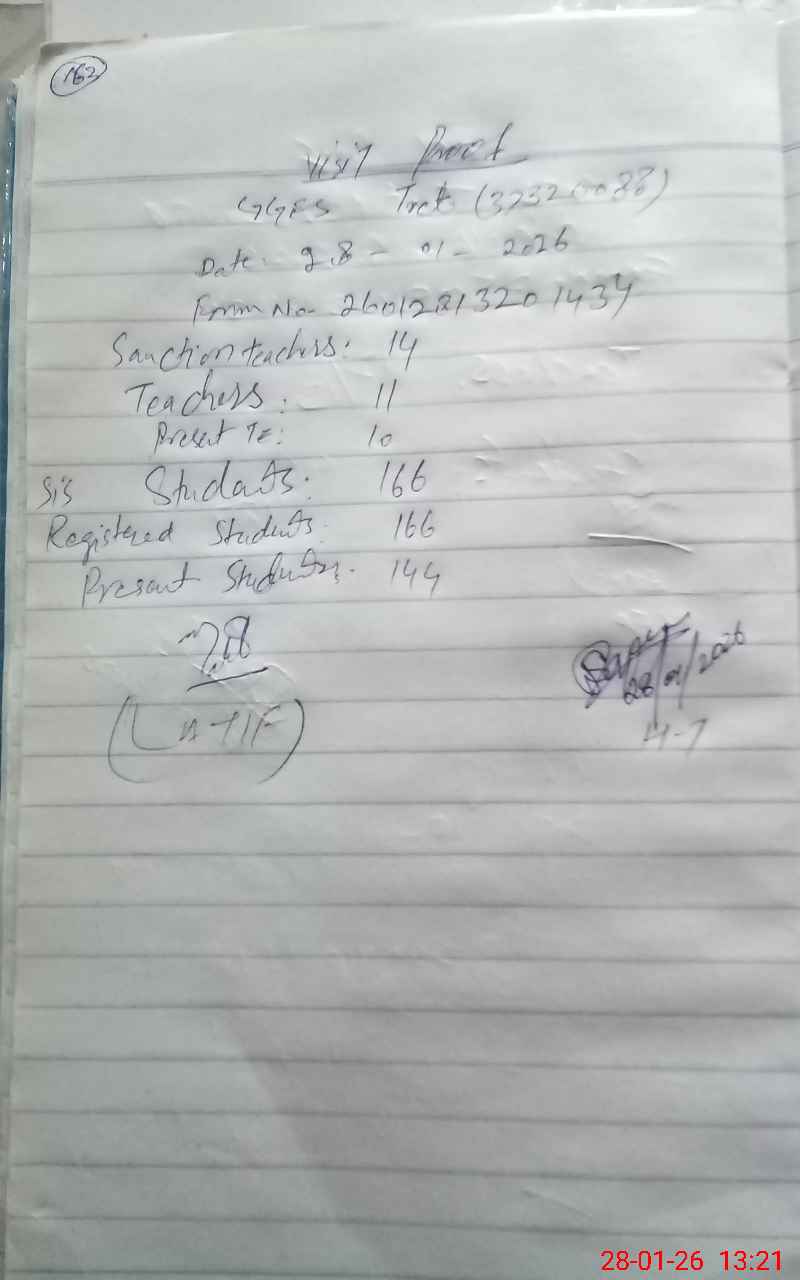 162
Visit Proof
GGES Tret (37320088)
Date: 28 - 01 - 2026
Form No- 26012813201434
Sanction teachers: 14
Teachers: 11
Present Te: 10
Sis Students: 166
Registered Students: 166
Present Students: 144
28/01/2026
(LatIF)
H-7
28-01-26 13:21